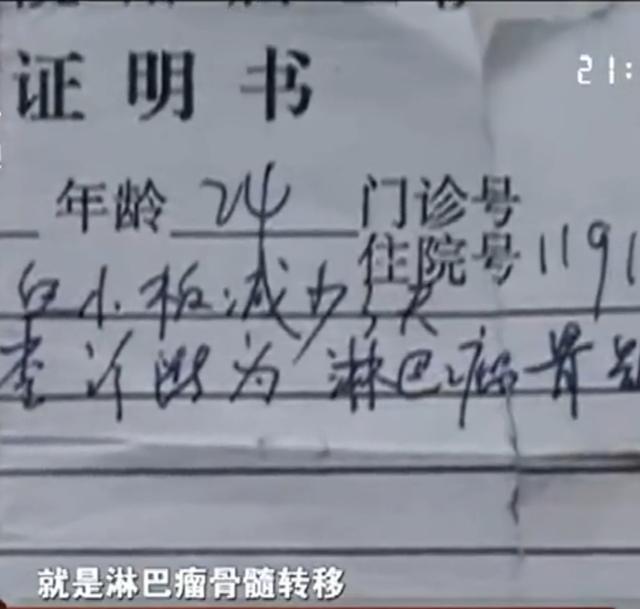 证明书
21:
年龄 24 门诊号
住院号 1191
血小板减少
查诊断为淋巴瘤骨
就是淋巴瘤骨髓转移